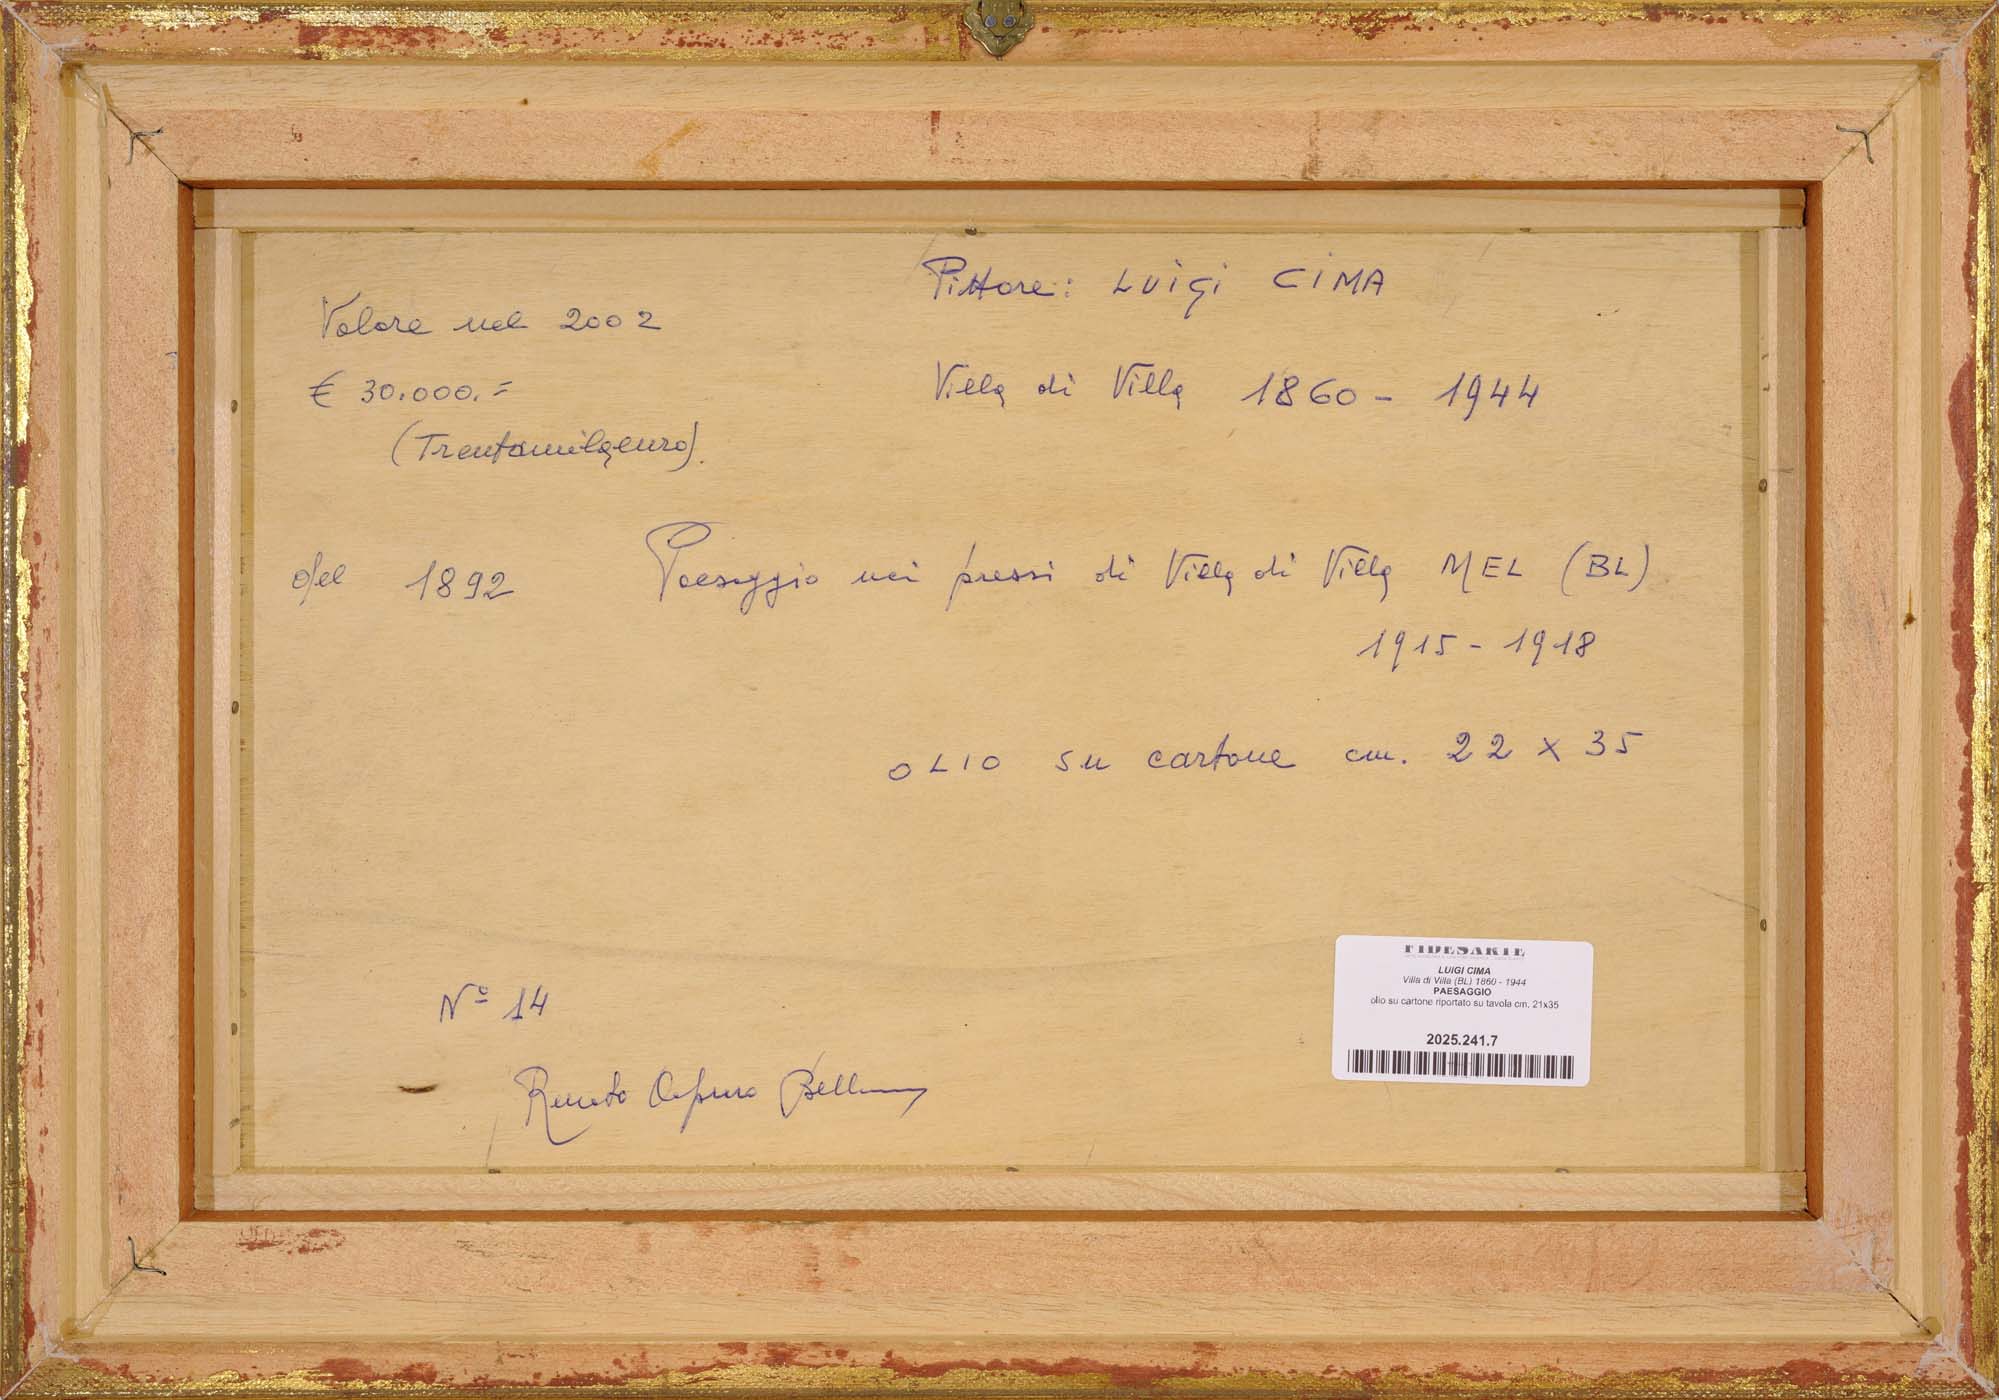 Pittore: LUIGI CIMA
Valore nel 2002
Villa di Villa 1860 - 1944
€ 30.000.=
(Trentamilaeuro).
del 1892 Paesaggio nei pressi di Villa di Villa MEL (BL)
1915 - 1918
OLIO su cartone cm. 22 x 35
N° 14
Renato Bellum
FIDESARTE
LUIGI CIMA
Villa di Villa (BL) 1860 - 1944
PAESAGGIO
olio su cartone riportato su tavola cm. 21x35
2025.241.7